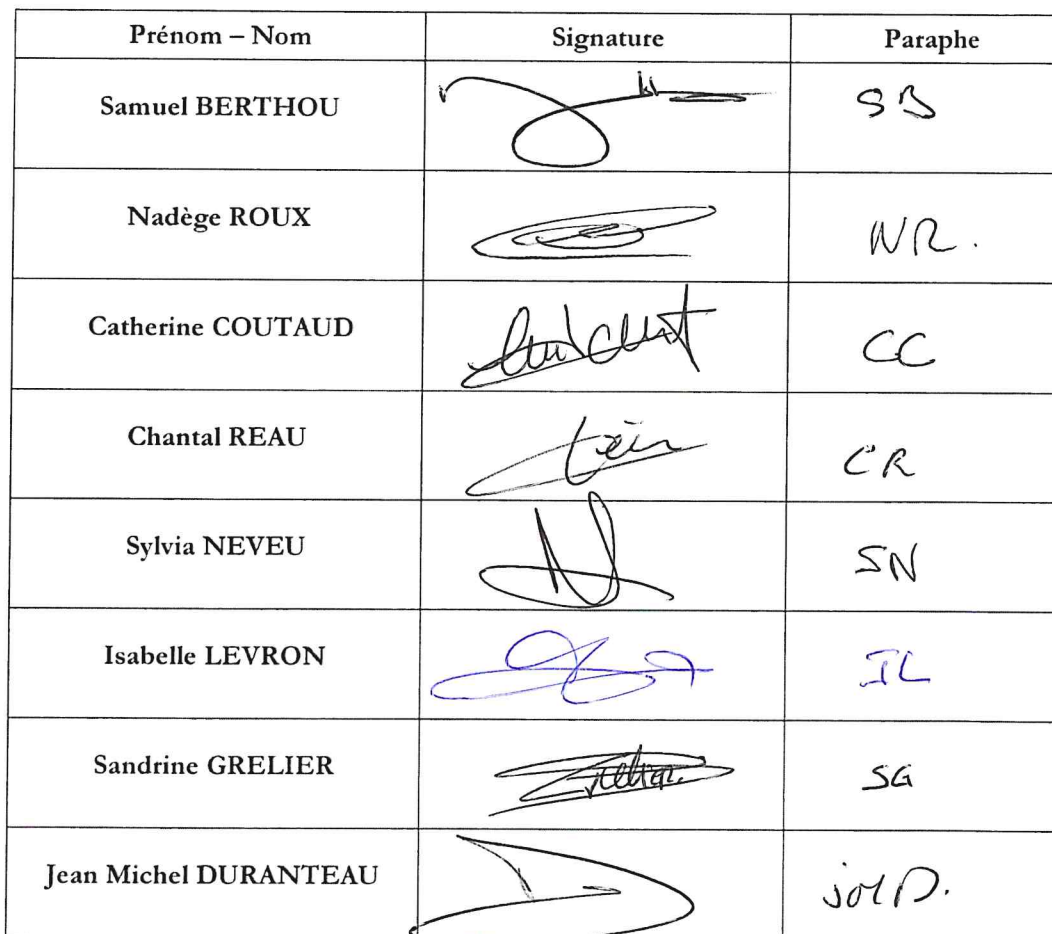 Prénom – Nom Signature Paraphe
Samuel BERTHOU SB
Nadège ROUX NR.
Catherine COUTAUD CC
Chantal REAU CR
Sylvia NEVEU SN
Isabelle LEVRON IL
Sandrine GRELIER SG
Jean Michel DURANTEAU JMD.